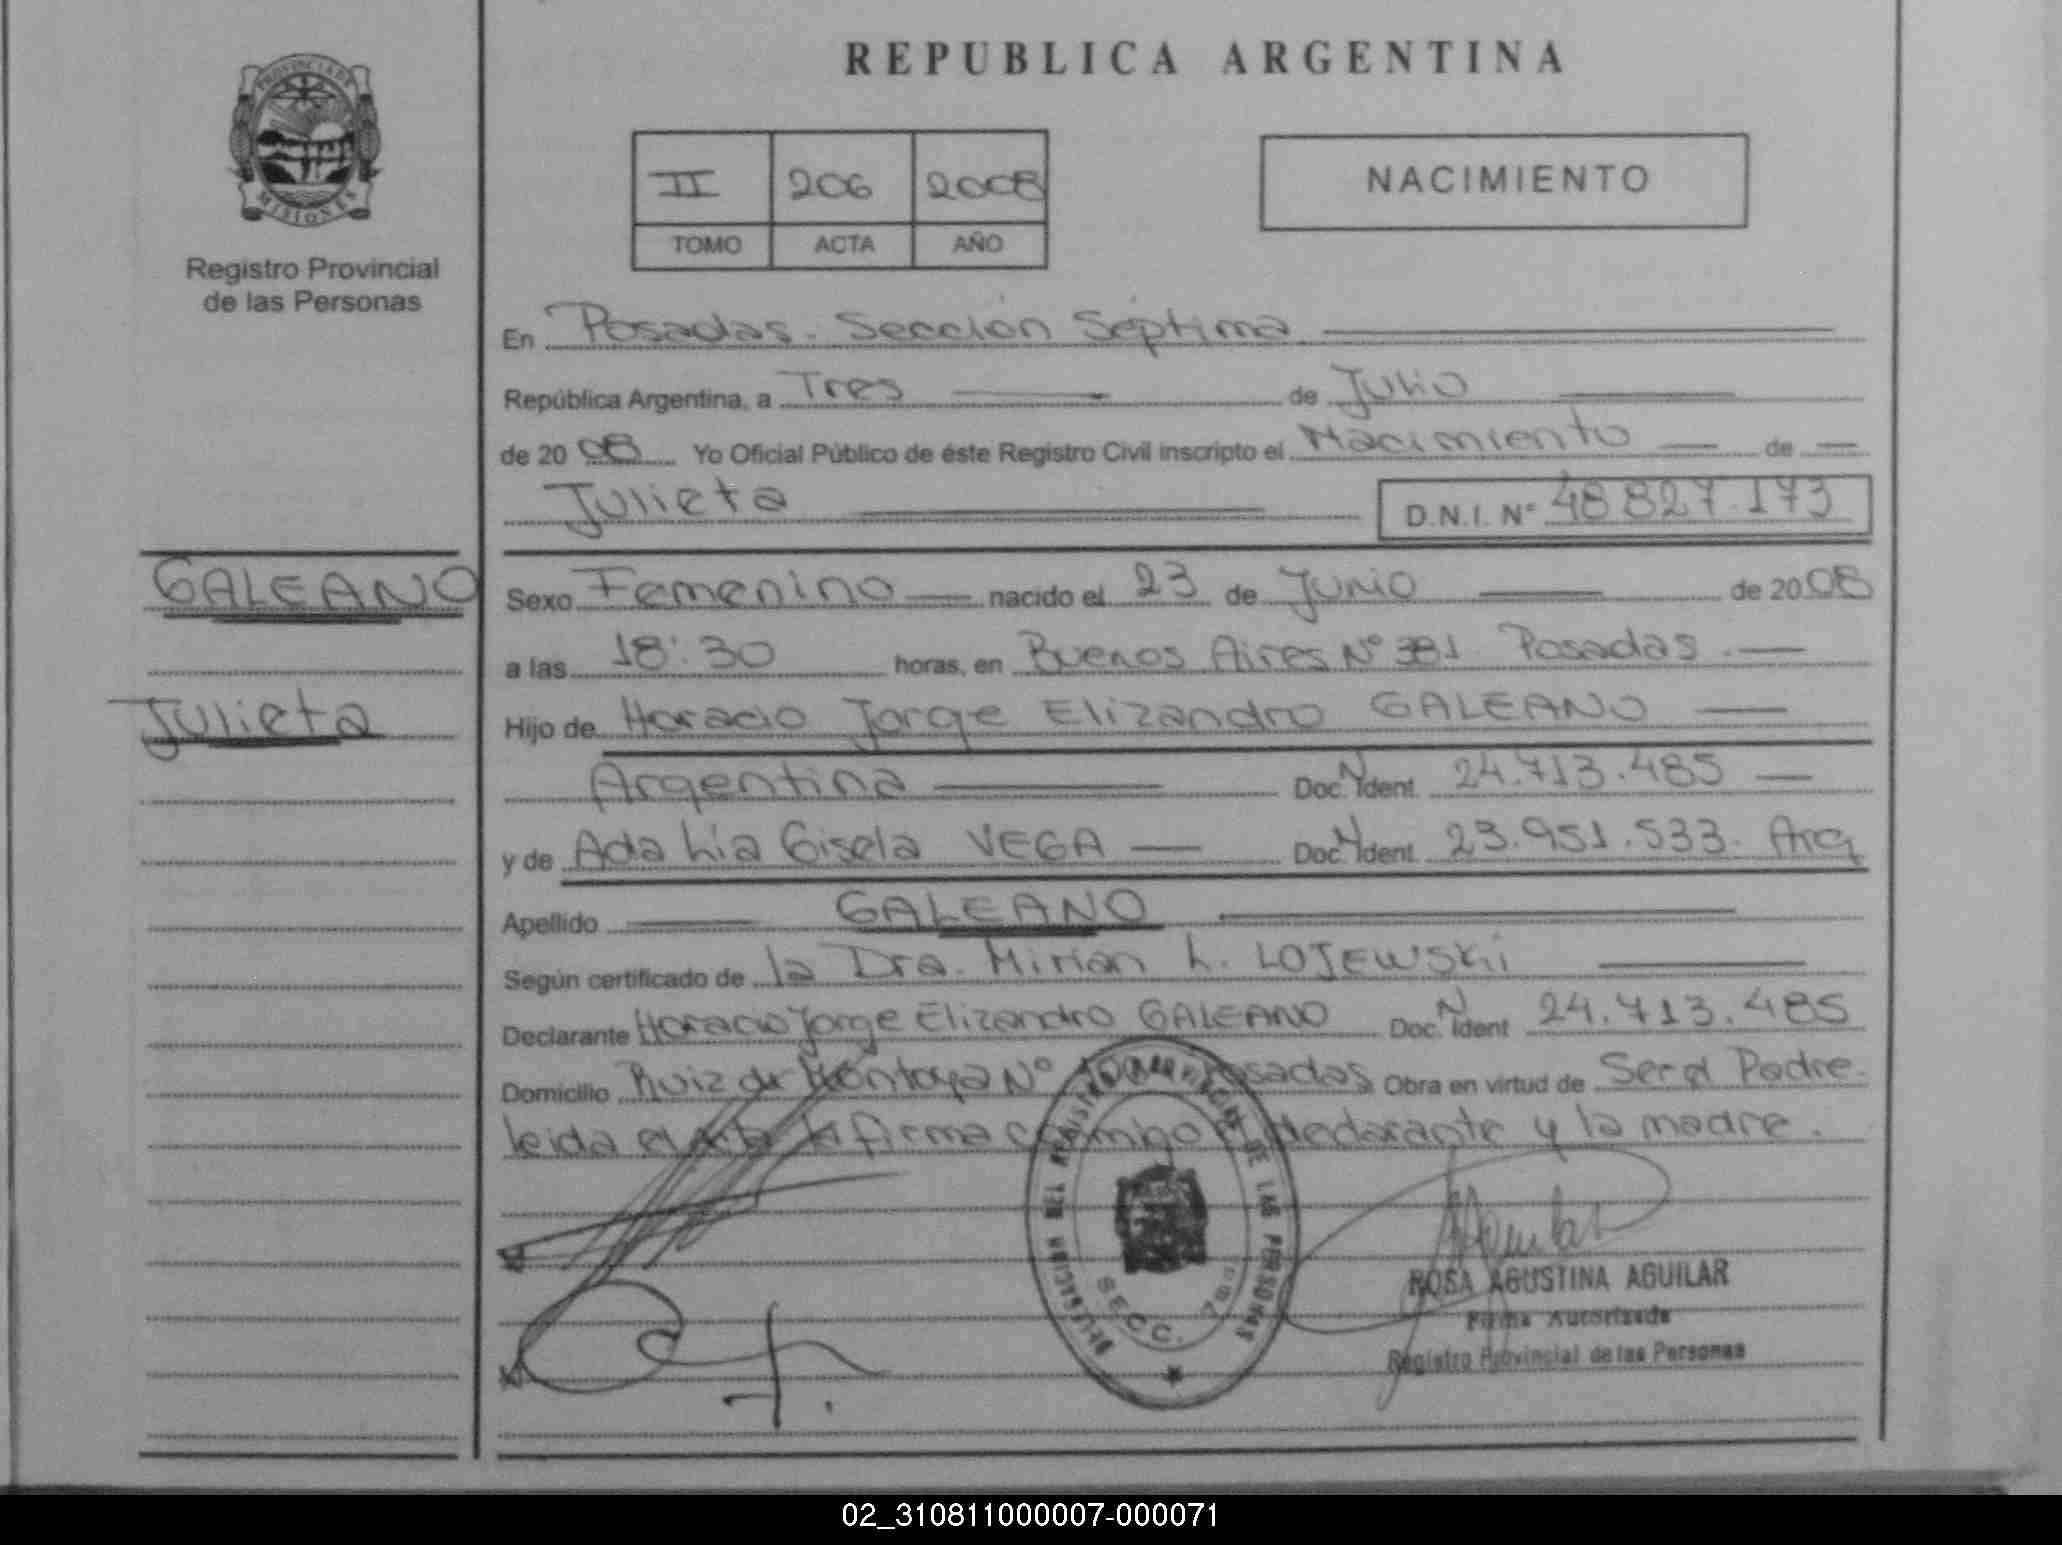 PROVINCIA DE
MISIONES
Registro Provincial
de las Personas
GALEANO
Julieta
REPUBLICA ARGENTINA
II 206 2008
TOMO ACTA AÑO
NACIMIENTO
En Posadas. Sección Séptima
República Argentina, a Tres de Julio
de 2008 Yo Oficial Público de éste Registro Civil inscripto el Nacimiento de
Julieta D.N.I. Nº 48.827.173
Sexo Femenino nacido el 23 de Junio de 2008
a las 18:30 horas, en Buenos Aires Nº 381 Posadas.
Hijo de Horacio Jorge Elizandro GALEANO
Argentina Doc. N. Ident. 24.713.485
y de Ada Lía Gisela VEGA Doc. N. Ident. 23.951.533. Arg
Apellido GALEANO
Según certificado de la Dra. Mirian L. LOJEWSKi
Declarante Horacio Jorge Elizandro GALEANO Doc. N. Ident 24.713.485
Domicilio Ruiz de Montoya Nº Posadas Obra en virtud de Ser el Padre.
leida el acta la firma conmigo el declarante y la madre.
DELEGACION DEL REGISTRO PROVINCIAL DE LAS PERSONAS
SECC. 7ma
ROSA AGUSTINA AGUILAR
Firma Autorizada
Registro Provincial de las Personas
02_310811000007-000071